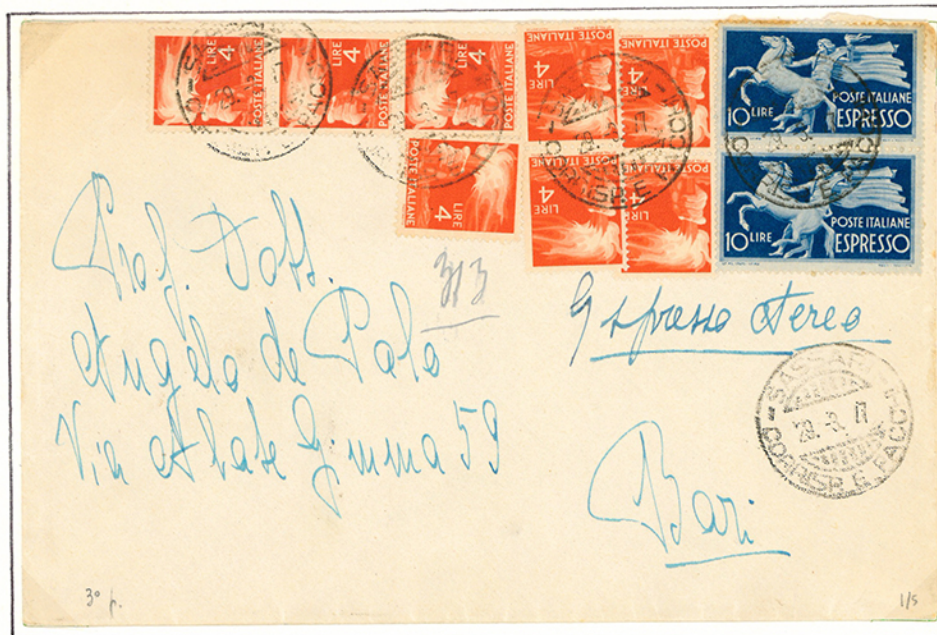 LIRE 4 POSTE ITALIANE
LIRE 4 POSTE ITALIANE
LIRE 4 POSTE ITALIANE
POSTE ITALIANE LIRE 4
POSTE ITALIANE LIRE 4
10 LIRE POSTE ITALIANE ESPRESSO
POSTE ITALIANE LIRE 4
POSTE ITALIANE LIRE 4
POSTE ITALIANE LIRE 4
10 LIRE POSTE ITALIANE ESPRESSO
Prof. Dott.
Angelo de Palo
Via Abate Gimma 59
313
Espresso Aereo
Bari
SASSARI
CORRISP. E PACCHI
3° p.
1/5